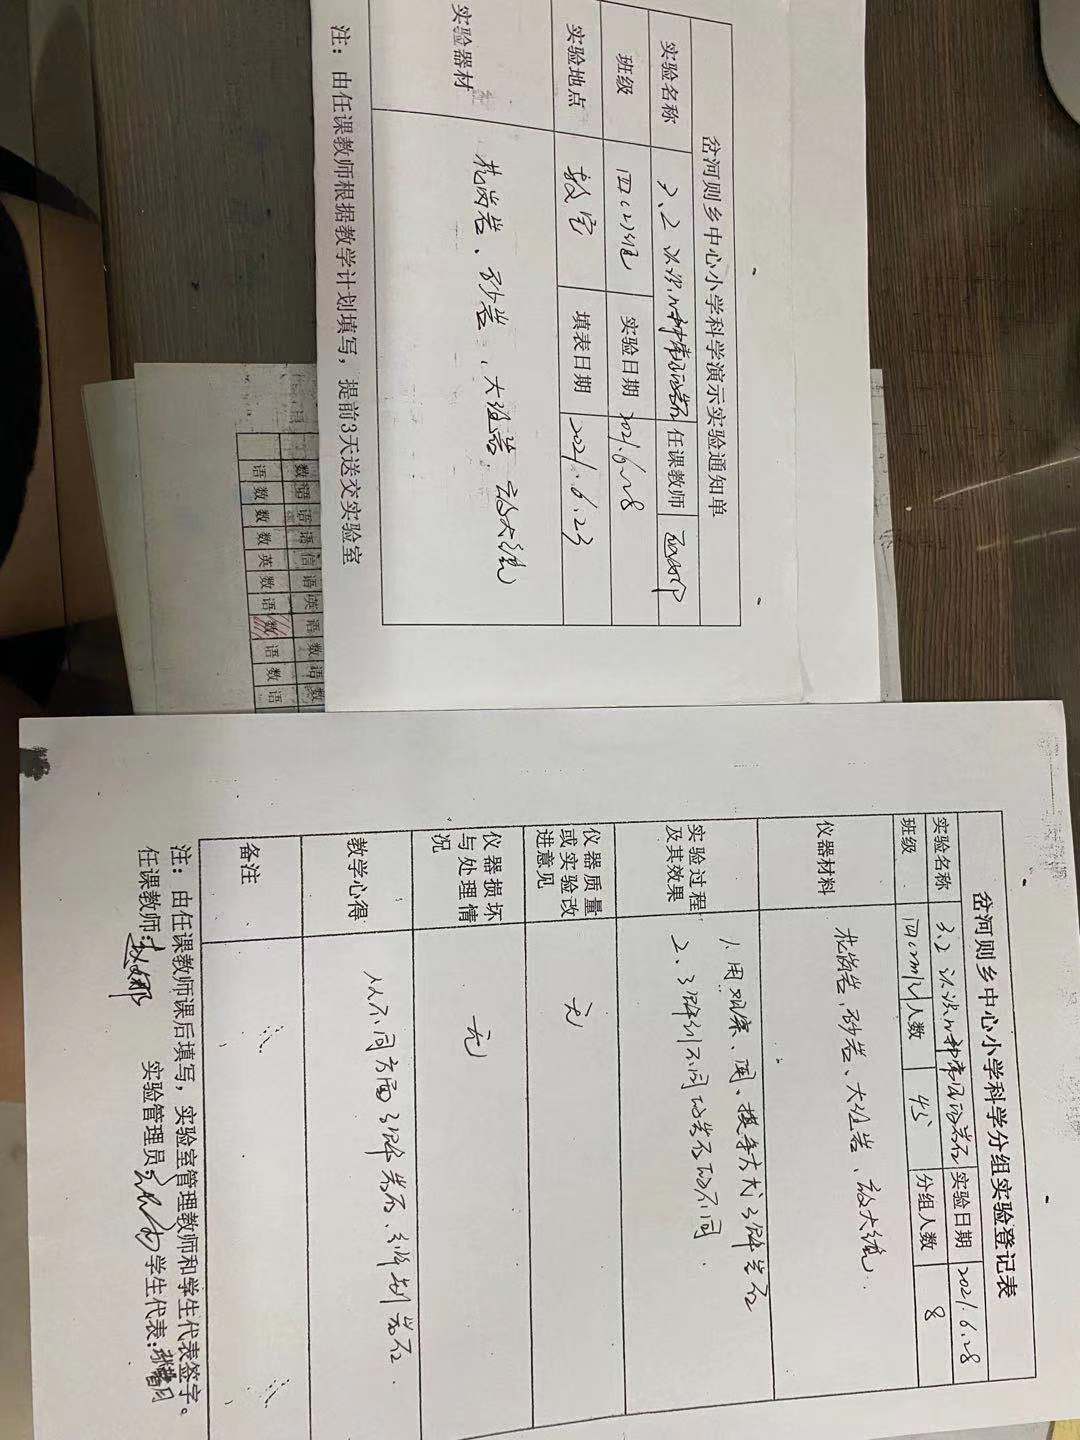 岔河则乡中心小学科学演示实验通知单
实验名称 3.2 认识几种常见的岩石 任课教师
班级 四(2)班 实验日期 2021.6.28
实验地点 教室 填表日期 2021.6.23
实验器材 花岗岩、砂岩、大理岩、放大镜
注：由任课教师根据教学计划填写，提前3天送交实验室
数 语 语 信 语 英 语 数 语 数
语 数 数 英 数 语 数 语 数 语
岔河则乡中心小学科学分组实验登记表
实验名称 3.2 认识几种常见的岩石 实验日期 2021.6.28
班级 人数 45 分组人数 8
仪器材料 花岗岩、砂岩、大理岩、放大镜.
实验过程及其效果
1.用观察、闻、摸等方式了解岩石
2、了解到不同的岩石的不同.
仪器质量或实验改进意见 无
仪器损坏与处理情况 无
教学心得 从不同方面了解岩石、了解到岩石.
备注
注：由任课教师课后填写，实验室管理教师和学生代表签字。
任课教师: 赵娜 实验管理员: 学生代表: